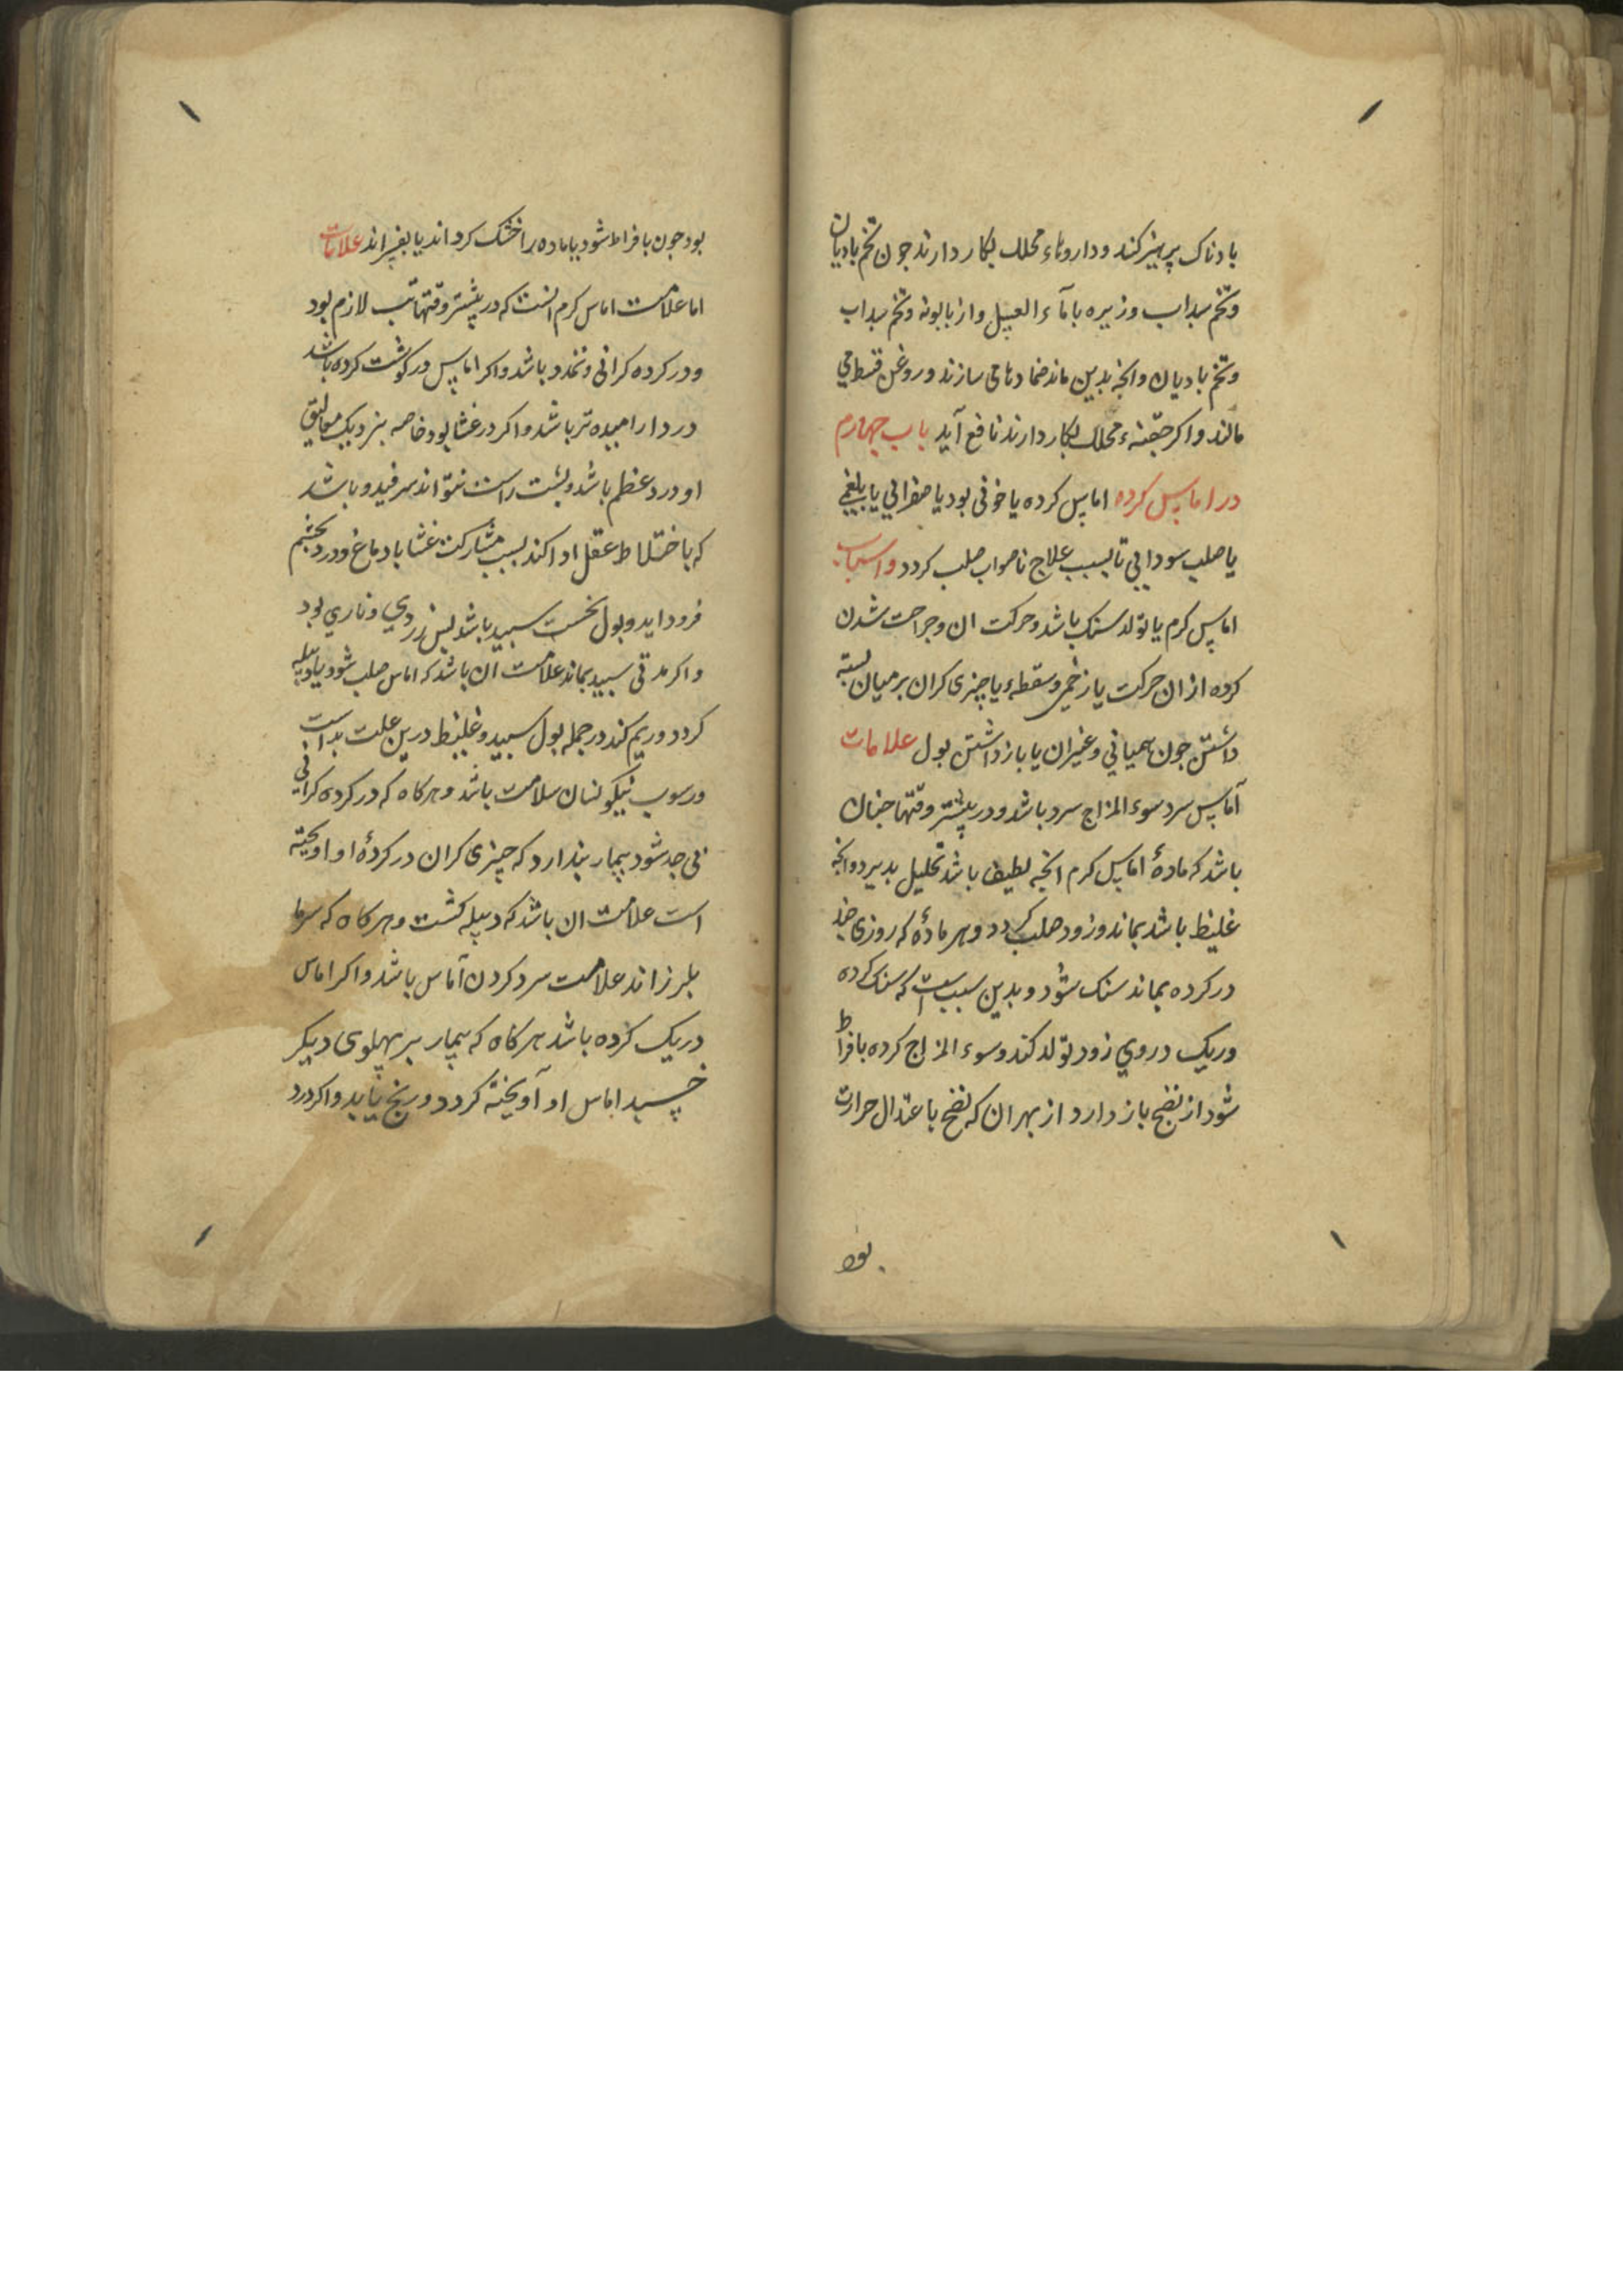 بادناک پرهیز کند و داروهاء محلل بکار دارند جون تخم بادیان
و تخم سداب و زیره با مآء العسل و از بابونه و تخم سداب
و تخم بادیان و انجه بدین ماند ضمادها می سازند و روغن قسط می
مالند و اکر حقنهء محلل بکار دارند نافع آید باب چهارم
در اماس کرده اماس کرده یا خونی بود یا صفرائی یا بلغمی
یا صلب سودایی تا بسبب علاج ناصواب صلب کردد و اسباب
اماس کرم یا تولد سنک باشد و حرکت ان و جراحت شدن
کرده از ان حرکت یا زخمی و سقطهء یا چیزی کران بر میان بسته
داشتن جون همیانی و غیر ان یا باز داشتن بول علامات
آماس سرد سوء المزاج سرد باشد و در بیشتر وقتها جنان
باشد که مادهٔ اماس کرم انجه لطیف باشد تحلیل بدیرد و انجه
غلیظ باشد بماند و زود صلب کردد و هر مادهٔ که روزی جند
در کرده بماند سنک شود و بدین سبب است که سنک کرده
و ریک در وی زود تولد کند و سوء المزاج کرده بافراط
شود از نضج باز دارد از بهر ان که نضج باعتدال حرارت
بود
بود جون بافراط شود یا ماده را خشک کرداند یا بفسراند علامات
اما علامت اماس کرم انست که در بیشتر وقتها تب لازم بود
و در کرده کرانی و تمدد باشد و اکر اماس در کوشت کرده باشد
درد ارامیده تر باشد و اکر در غشا بود خاصه بنزدیک معالیق
او درد عظیم باشد و بشت راست نتواند و باشد
که باختلاط عقل ادا کند بسبب مشارکت غشا با دماغ و درد بجشم
فرود اید و بول نخست سبید باشد بس زردی و ناری بود
و اکر مدتی سبید بماند علامت ان باشد که اماس صلب شود یا دبیله
کردد و ریم کند در جمله بول سبید و غلیظ درین علت بد است
و رسوب نیکو نشان سلامت باشد و هرکاه که در کرده کرانی
بی حد شود بیمار بندارد که چیزی کران در کردهٔ او اویخته
است علامت ان باشد که دبیله کشت و هرکاه که سرما
بلرزاند علامت سرد کردن آماس باشد و اکر اماس
در یک کرده باشد هرکاه که بیمار بر پهلوی دیکر
خسبد اماس او آویخته کردد و رنج یابد و اکر درد